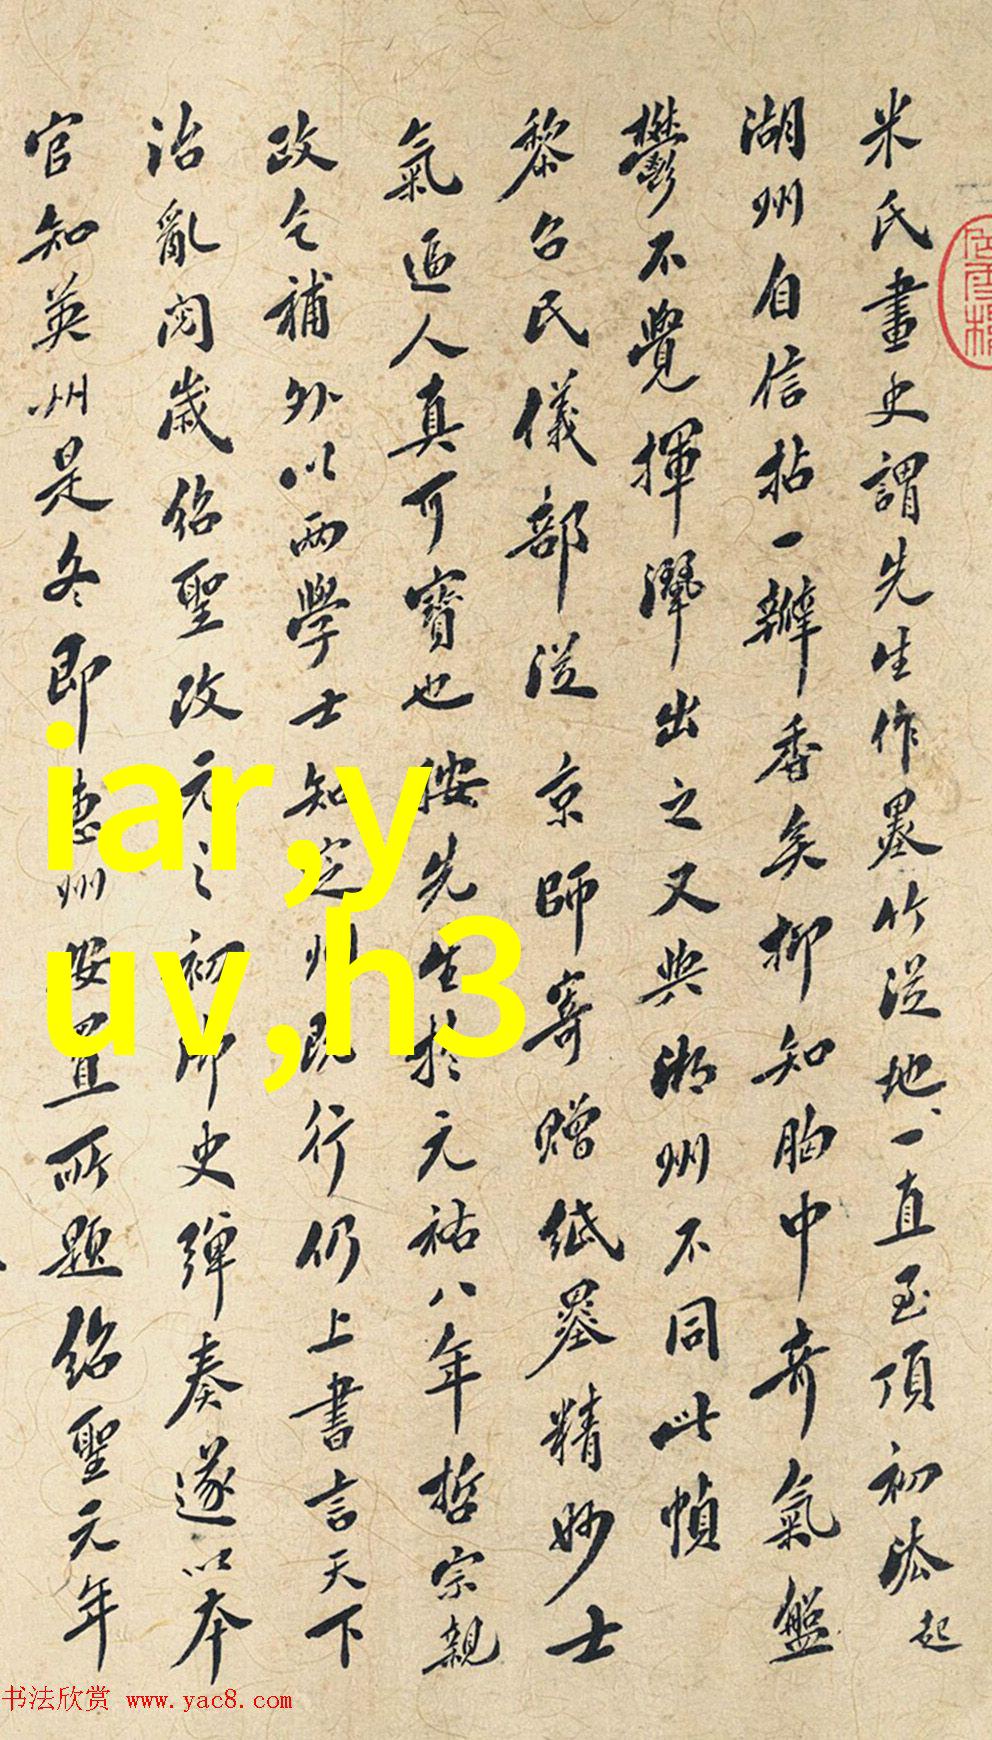 米氏畫史謂先生作墨竹從地一直至頂初法起
湖州自信拈一瓣香矣抑知胸中奇氣盤
鬱不覺揮灑出之又與湖州不同此幀
黎召民儀部從 京師寄贈紙墨精妙士
氣逼人真可寶也按先生於元祐八年哲宗親
政乞補外以兩學士知定州既行仍上書言天下
治亂閱歲紹聖改元之初御史彈奏遂以本
官知英州是冬即惠州安置所題紹聖元年
iar ,y
uv,h3
书法欣赏 www.yac8.com